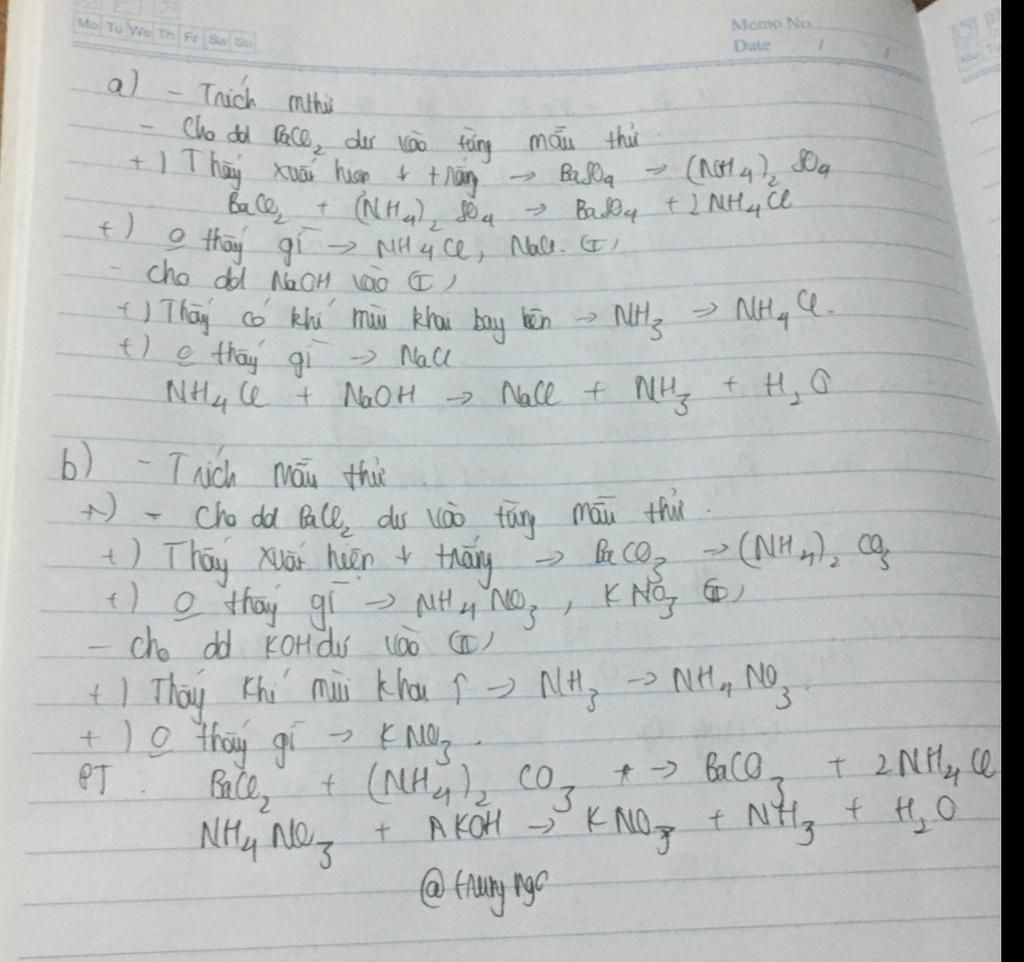 Mo Tu We Th Fr Sa Su
Memo No.
Date / /
a) - Trích mthử
- Cho dd BaCl₂ dư vào từng mẫu thử.
+) Thấy xuất hiện ↓ trắng → BaSO₄ → (NH₄)₂ SO₄
BaCl₂ + (NH₄)₂ SO₄ → BaSO₄ + 2NH₄Cl
+) O thấy gì → NH₄Cl, NaCl. (I)
- Cho dd NaOH vào (I)
+) Thấy có khí mùi khai bay lên → NH₃ → NH₄Cl.
+) O thấy gì → NaCl
NH₄Cl + NaOH → NaCl + NH₃ + H₂O
b) - Trích mẫu thử
- Cho dd BaCl₂ dư vào từng mẫu thử.
+) Thấy xuất hiện ↓ trắng → BaCO₃ → (NH₄)₂ CO₃
+) O thấy gì → NH₄NO₃, KNO₃ (I)
- cho dd KOH dư vào (I)
+) Thấy khí mùi khai ↑ → NH₃ → NH₄NO₃.
+) O thấy gì → KNO₃.
PT: BaCl₂ + (NH₄)₂ CO₃ → BaCO₃ + 2NH₄Cl
NH₄NO₃ + KOH → KNO₃ + NH₃ + H₂O
@trungngo